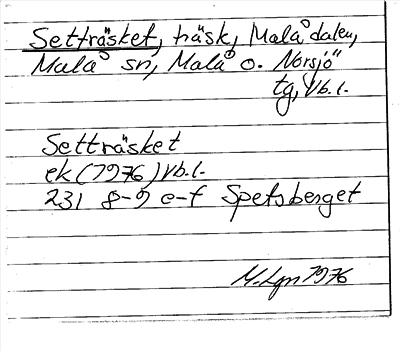 Setträsket, träsk, Malå dalen,
Malå sn, Malå o. Norsjö
tg, Vb.l.
Setträsket
ek (1976) Vb.l.
231 8-9 e-f Spetsberget
M. Lgn 1976